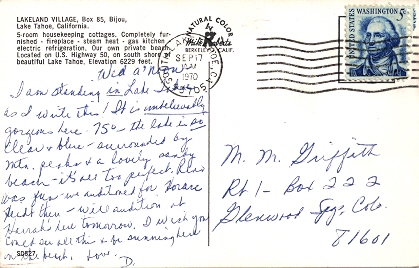 LAKELAND VILLAGE, Box 85, Bijou,
Lake Tahoe, California.
5-room housekeeping cottages. Completely fur-
nished - fireplace - steam heat - gas kitchen
electric refrigeration. Our own private beach.
Located on U.S. Highway 50, on south shore of
beautiful Lake Tahoe, Elevation 6229 feet.
NATURAL COLOR
K
Mike Roberts
BERKELEY, CALIF.
SEP 17
PM
1970
95705
5¢
WASHINGTON
U.S. POSTAGE
Wed a'noon
I am standing in Lake
as I write this! It is unbelievably
gorgeous here. 75° - the lake is so
clear & blue - surrounded by
mtn. peaks & a lovely sandy
beach - it's all too perfect. Reno
was fun - we auditioned for
there - will audition at
Harrah's here tomorrow. I wish you
could see all this & be sunning here
on the beach. Love. D.
S0827
M. M. Griffith
Rt 1 - Box 222
Glenwood Spgs, Colo.
81601